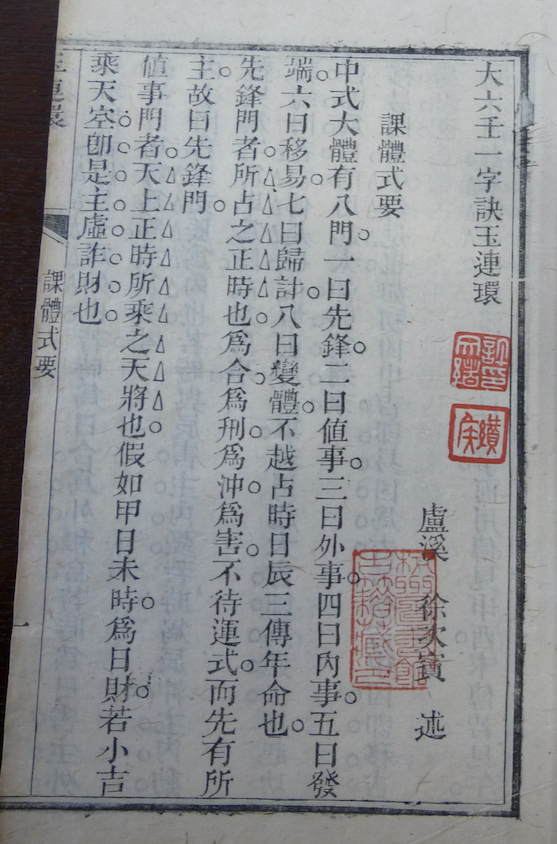 大六壬一字訣玉連環
盧溪 徐次賓 述
課體式要
中式大體有八門一曰先鋒二曰值事三曰外事四曰內事五曰發
端六曰移易七曰歸計八曰變體不越占時日辰三傳年命也
先鋒門者所占之正時也為合為刑為沖為害不待運式而先有所
主故曰先鋒門
值事門者天上正時所乘之天將也假如甲日未時為日財若小吉
乘天空卽是主虛詐財也
課體式要
一